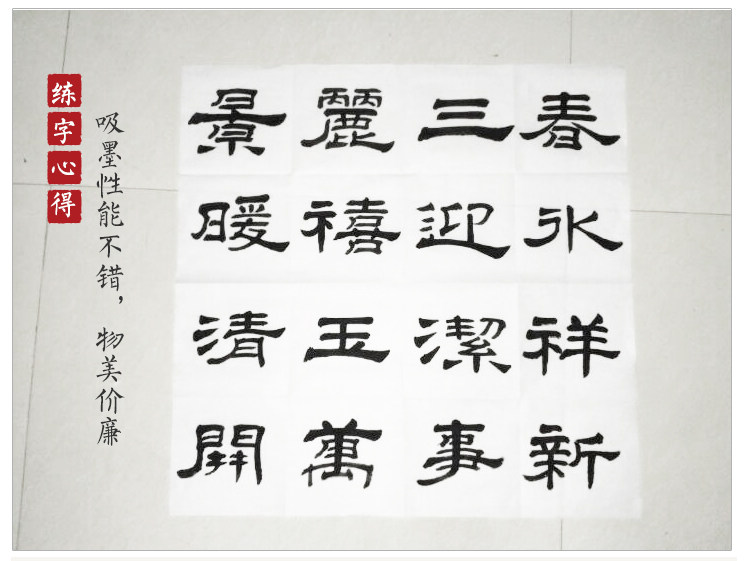 练字心得
吸墨性能不错，物美价廉
春水祥新
三迎潔事
麗禧玉萬
景暖清開